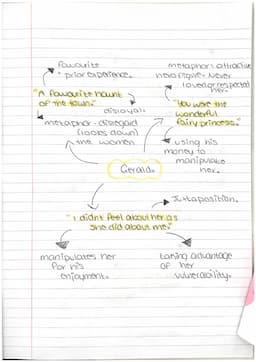 favourite
• prior experience.
"A favourite haunt
of the town."
disloyal.
metaphor - disregard
(looks down)
the women
metaphor: attractive
hero figure. Never
loved or respected
her.
"You were the
wonderful
fairy princess."
using his
money to
manipulate
her.
Gerald.
Juxtaposition.
"I didnt feel about her as
she did about me."
manipulates her
for his
enjoyment.
taking advantage
of her
vulnerability.